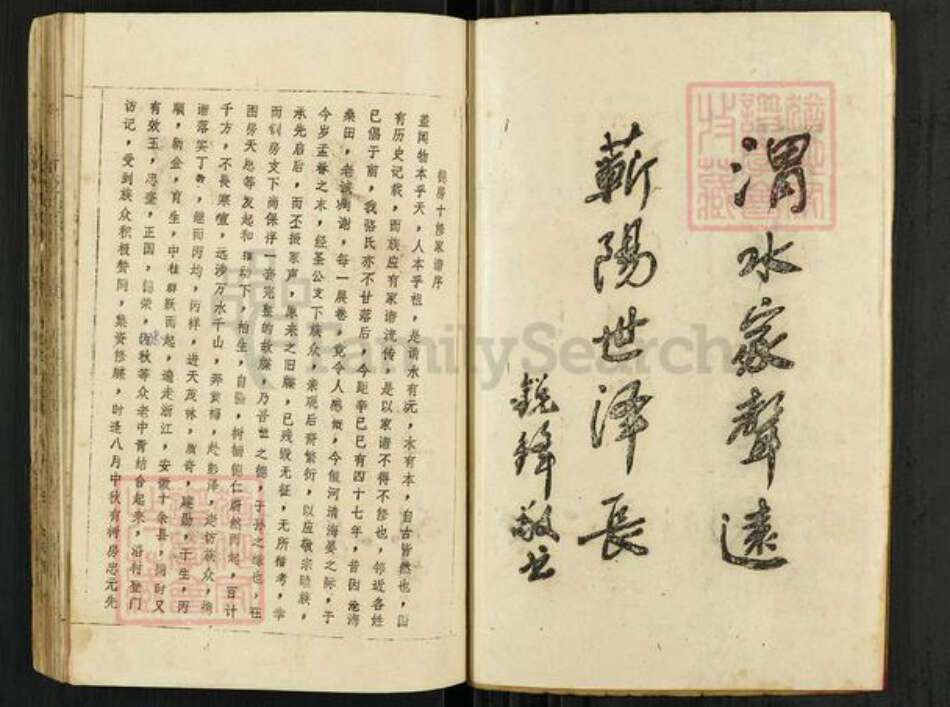 渭水家聲遠
蘄陽世澤長
銳鋒敬书
房十修家谱序
盖闻物本乎天，人本乎祖，是谓水有元，木有本，自古皆然也，国
有历史记载，而族应有家谱流传，是以家谱不得不修也，邻近各姓
已倡于前，我骆氏亦不甘落后，今距辛巳已有四十七年，昔因沧海
桑田，老诚凋谢，每一展卷，竟令人感慨，今值河清海晏之际，于
今岁孟春之末，经圣公支下族众，亲观后裔繁衍，以应敬宗睦族，
承先启后，而丕振家声，原来之旧牒，已残毁无征，无所稽考，幸
而钊房支下尚保存一套完整的故牒，乃吾世之德，子孙之缘也，在
国房天总等发起和推动下，柏生，自，树楠德仁蔚然而起，百计
千方，不畏寒暄，远涉万水千山，奔黄梅，赴彭泽，走访族众，
谱落实丁，继而丙均，丙祥，进天茂林，质奇，建勋，于生，丙
顺，勋金，育生，中柱群跃而起，遍走浙江，安徽十余县，同时又
有效玉，忠奎，正国，锦荣，茂秋等众老中青结合起来，沿村登门
访记，受到族众积极赞同，集资修牒，时逢八月中秋有树房忠元先
FamilySearch